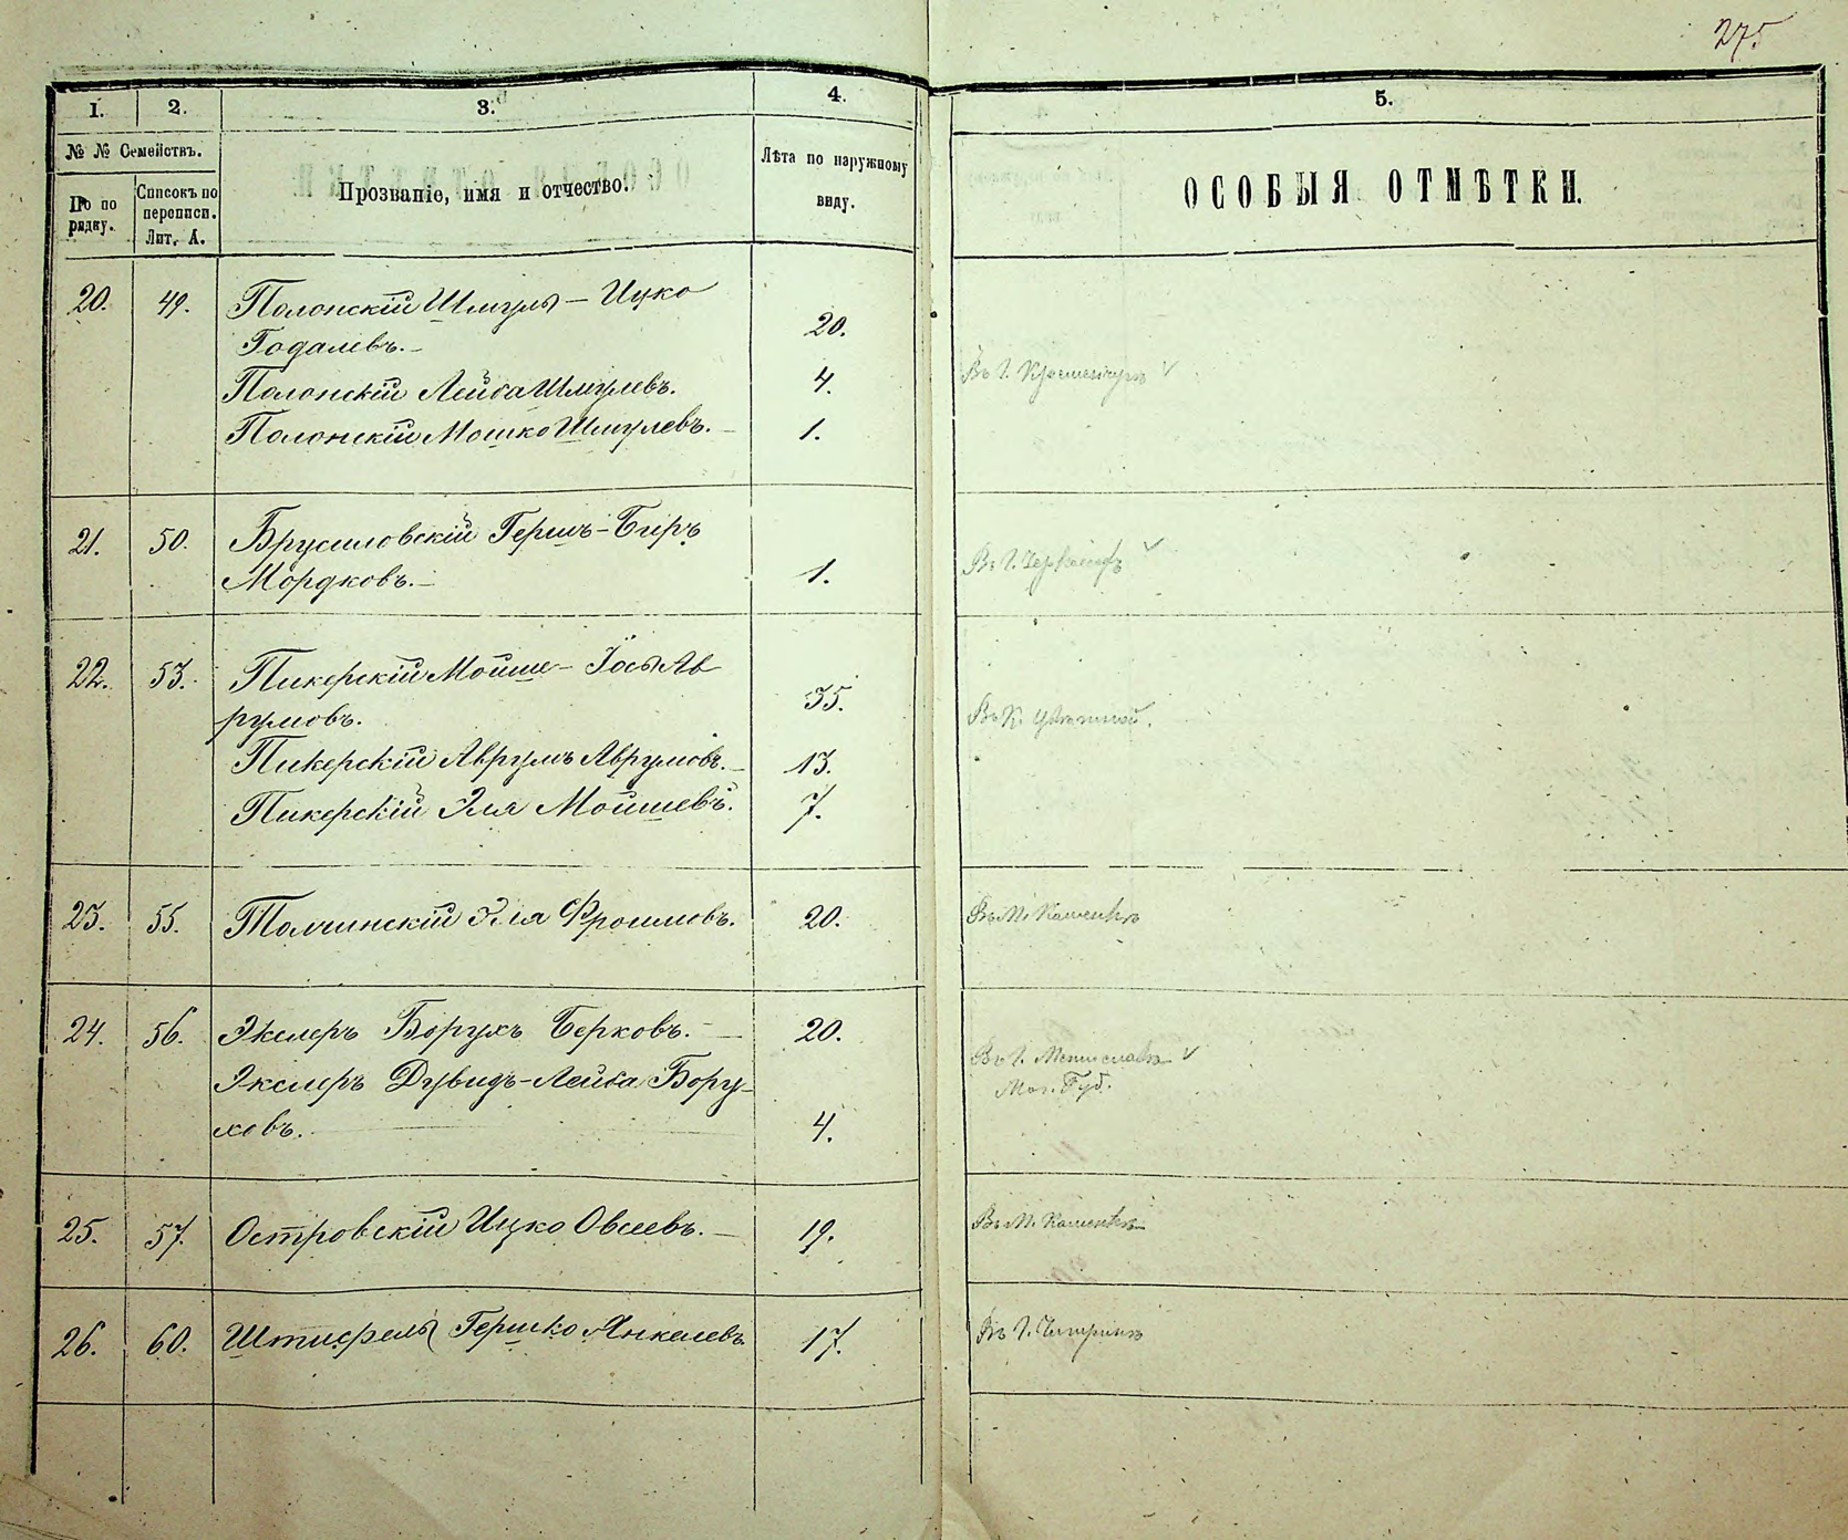 275
1. 2. 3. 4. 5.
№ № Семействъ.
По по рядку.
Списокъ по переписи. Лит. А.
Прозваніе, имя и отчество.
Лѣта по наружному виду.
ОСОБЫЯ ОТМѢТКИ.
20. 49. Полонскій Шмуль – Ицко
Годалевъ. – 20.
Полонскій Лейба Шмулевъ. 4. Въ Г. Кременчугѣ
Полонскій Мошко Шмулевъ. – 1.
21. 50. Брусиловскій Гершъ – Беръ
Мордковъ. – 1. Въ Г.
22. 53. Пикерскій Мойше – Іось Ав
румовъ. 35. Въ
Пикерскій Аврумъ Аврумовъ. – 13.
Пикерскій Эля Мойшевъ. 7.
23. 55. Толчинскій Эля Фроимовъ. 20. Въ М. Каменкѣ
24. 56. Экслеръ Борухъ Берковъ. – 20.
Въ Г. Мстиславлѣ
Экслеръ Дувидъ-Лейба Бору-
Мог. Губ.
ховъ. 4.
25. 57. Островскій Ицко Овсеевъ. – 19. Въ М. Каменкѣ
26. 60. Штифель Гершко Янкелевъ 17. Въ Г. Чигиринѣ